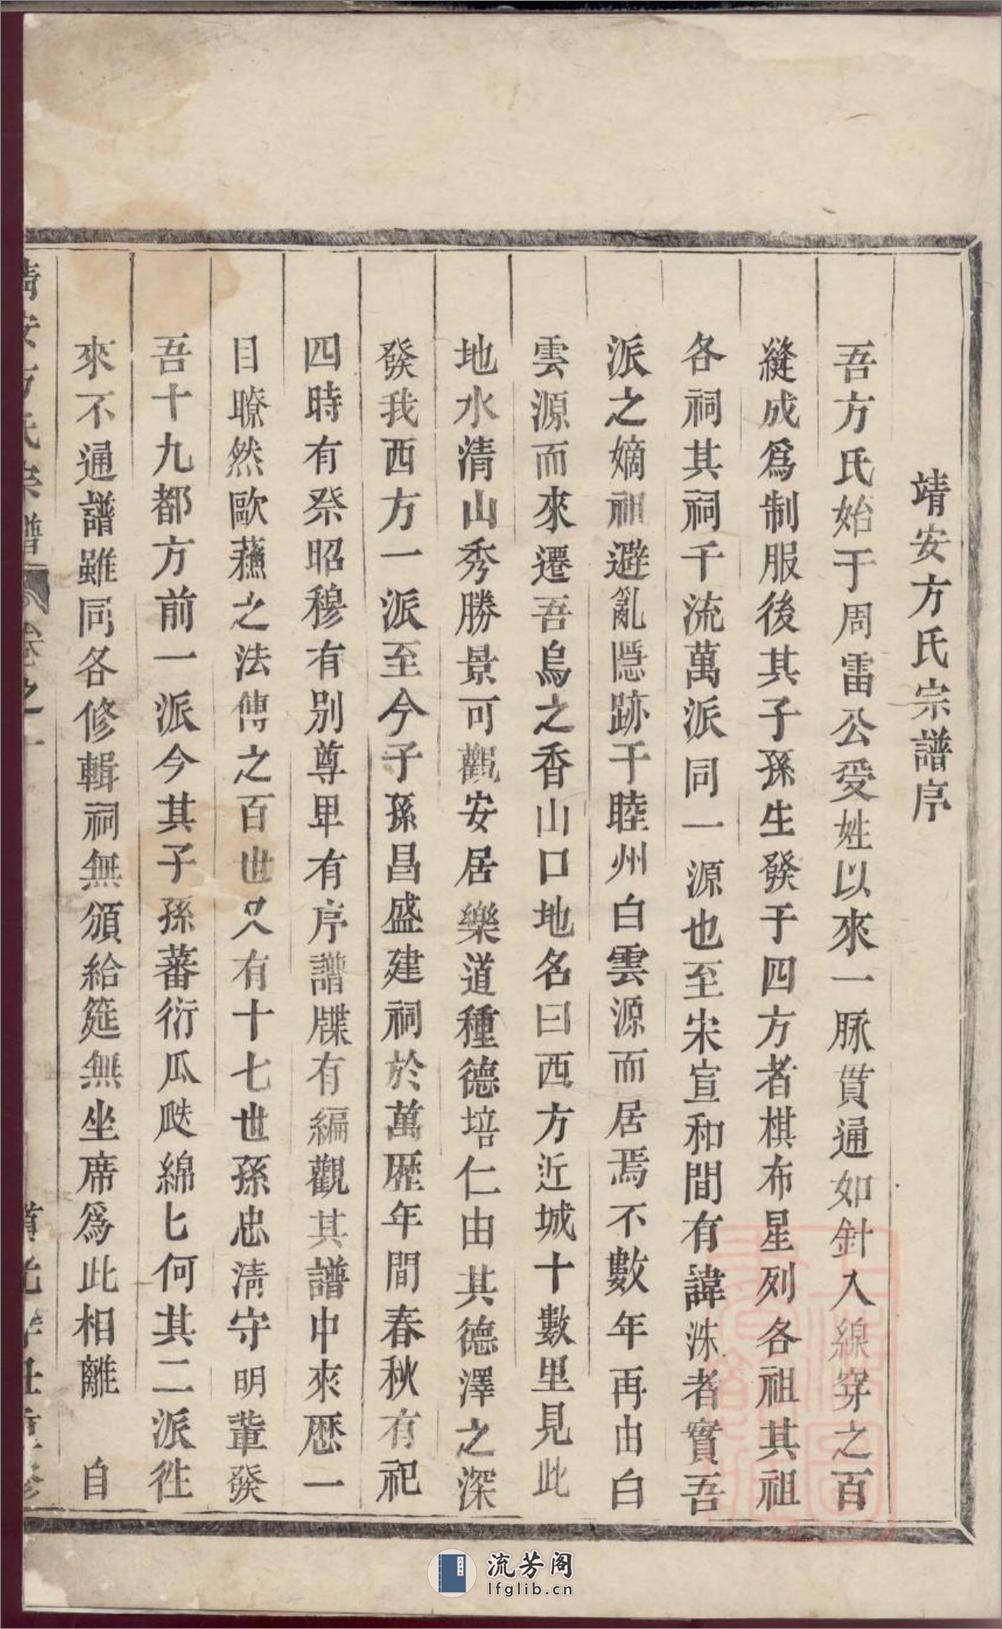 靖安方氏宗譜序
吾方氏始于周雷公受姓以來一脉貫通如針入線穿之百
縫成爲制服後其子孫生發于四方者棋布星列各祖其祖
各祠其祠千流萬派同一源也至宋宣和間有諱洙者實吾
派之嫡祖避亂隱跡于睦州白雲源而居焉不數年再由白
雲源而來遷吾烏之香山口地名曰西方近城十數里見此
地水清山秀勝景可觀安居樂道種德培仁由其德澤之深
發我西方一派至今子孫昌盛建祠於萬歷年間春秋有祀
四時有祭昭穆有別尊卑有序譜牒有編觀其譜中來歷一
目瞭然歐蘓之法傳之百世又有十七世孫忠清守明輩發
吾十九都方前一派今其子孫蕃衍瓜瓞綿匕何其二派徃
來不通譜雖同各修輯祠無頒給筵無坐席爲此相離 自
靖安方氏宗譜 卷之一 道光辛丑重修
流芳阁
lfglib.cn